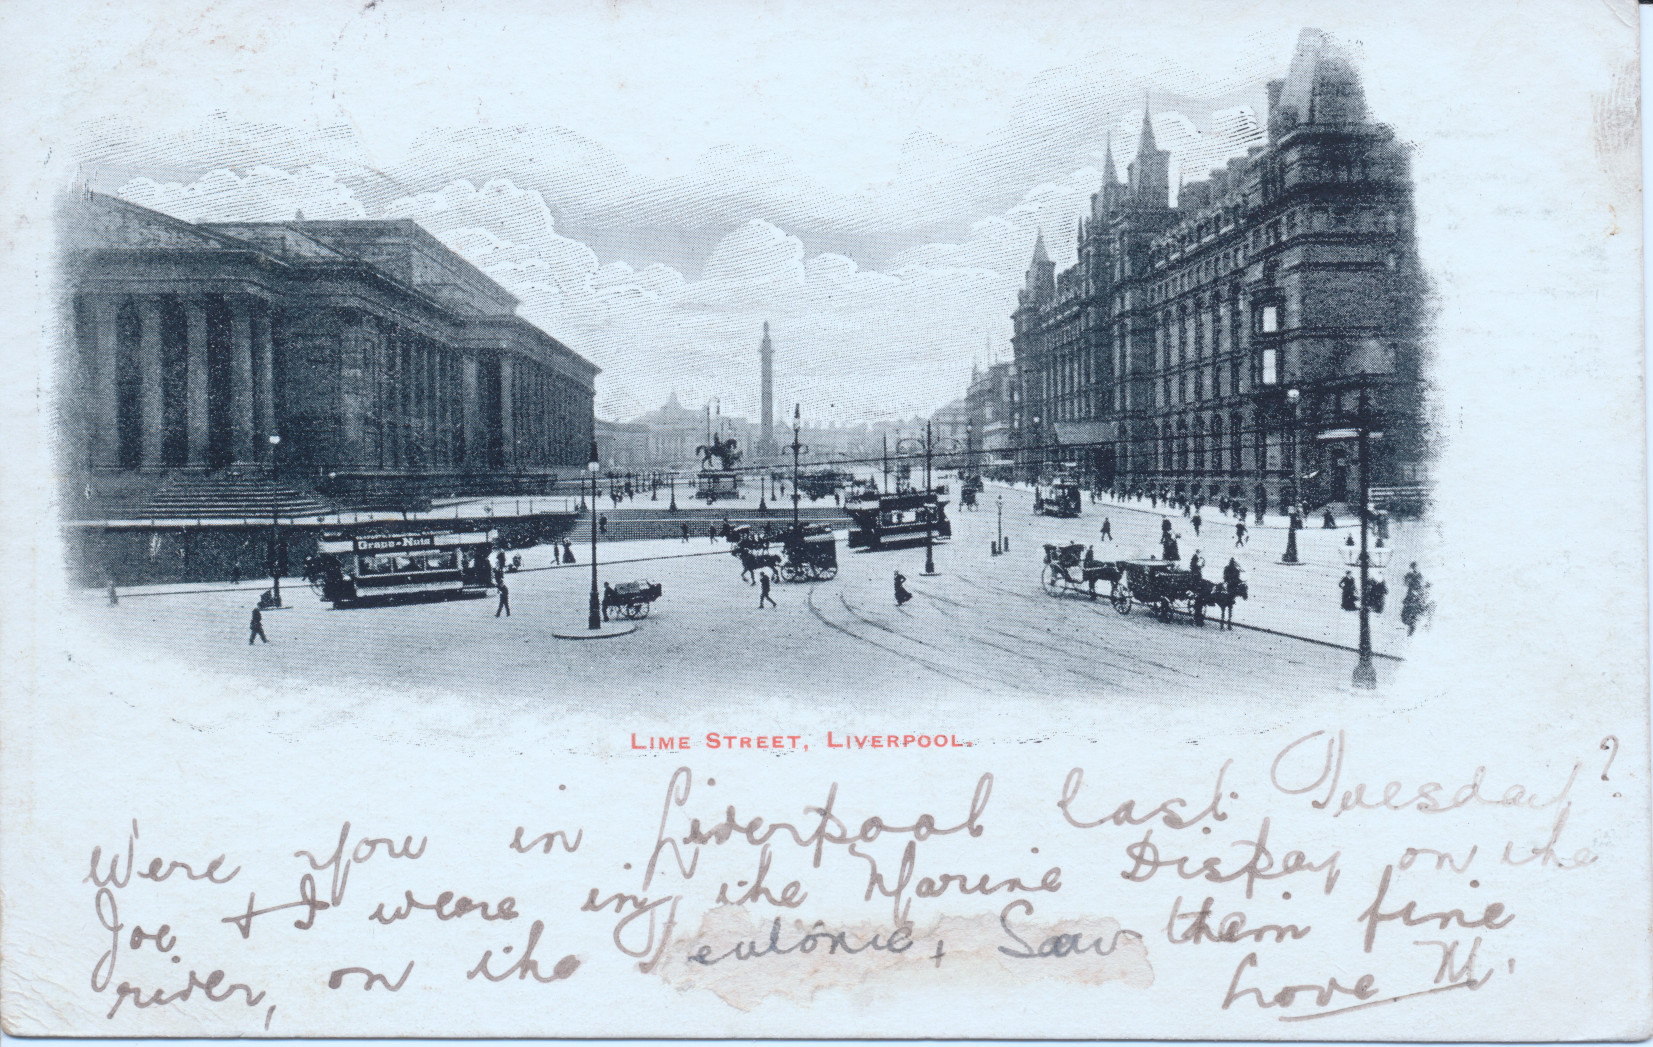 Grape-Nuts
LIME STREET, LIVERPOOL.
Were you in Liverpool last Tuesday?
Joe + I were in the Marine Display on the
river, on the Teutonic, Saw them fine
Love M.